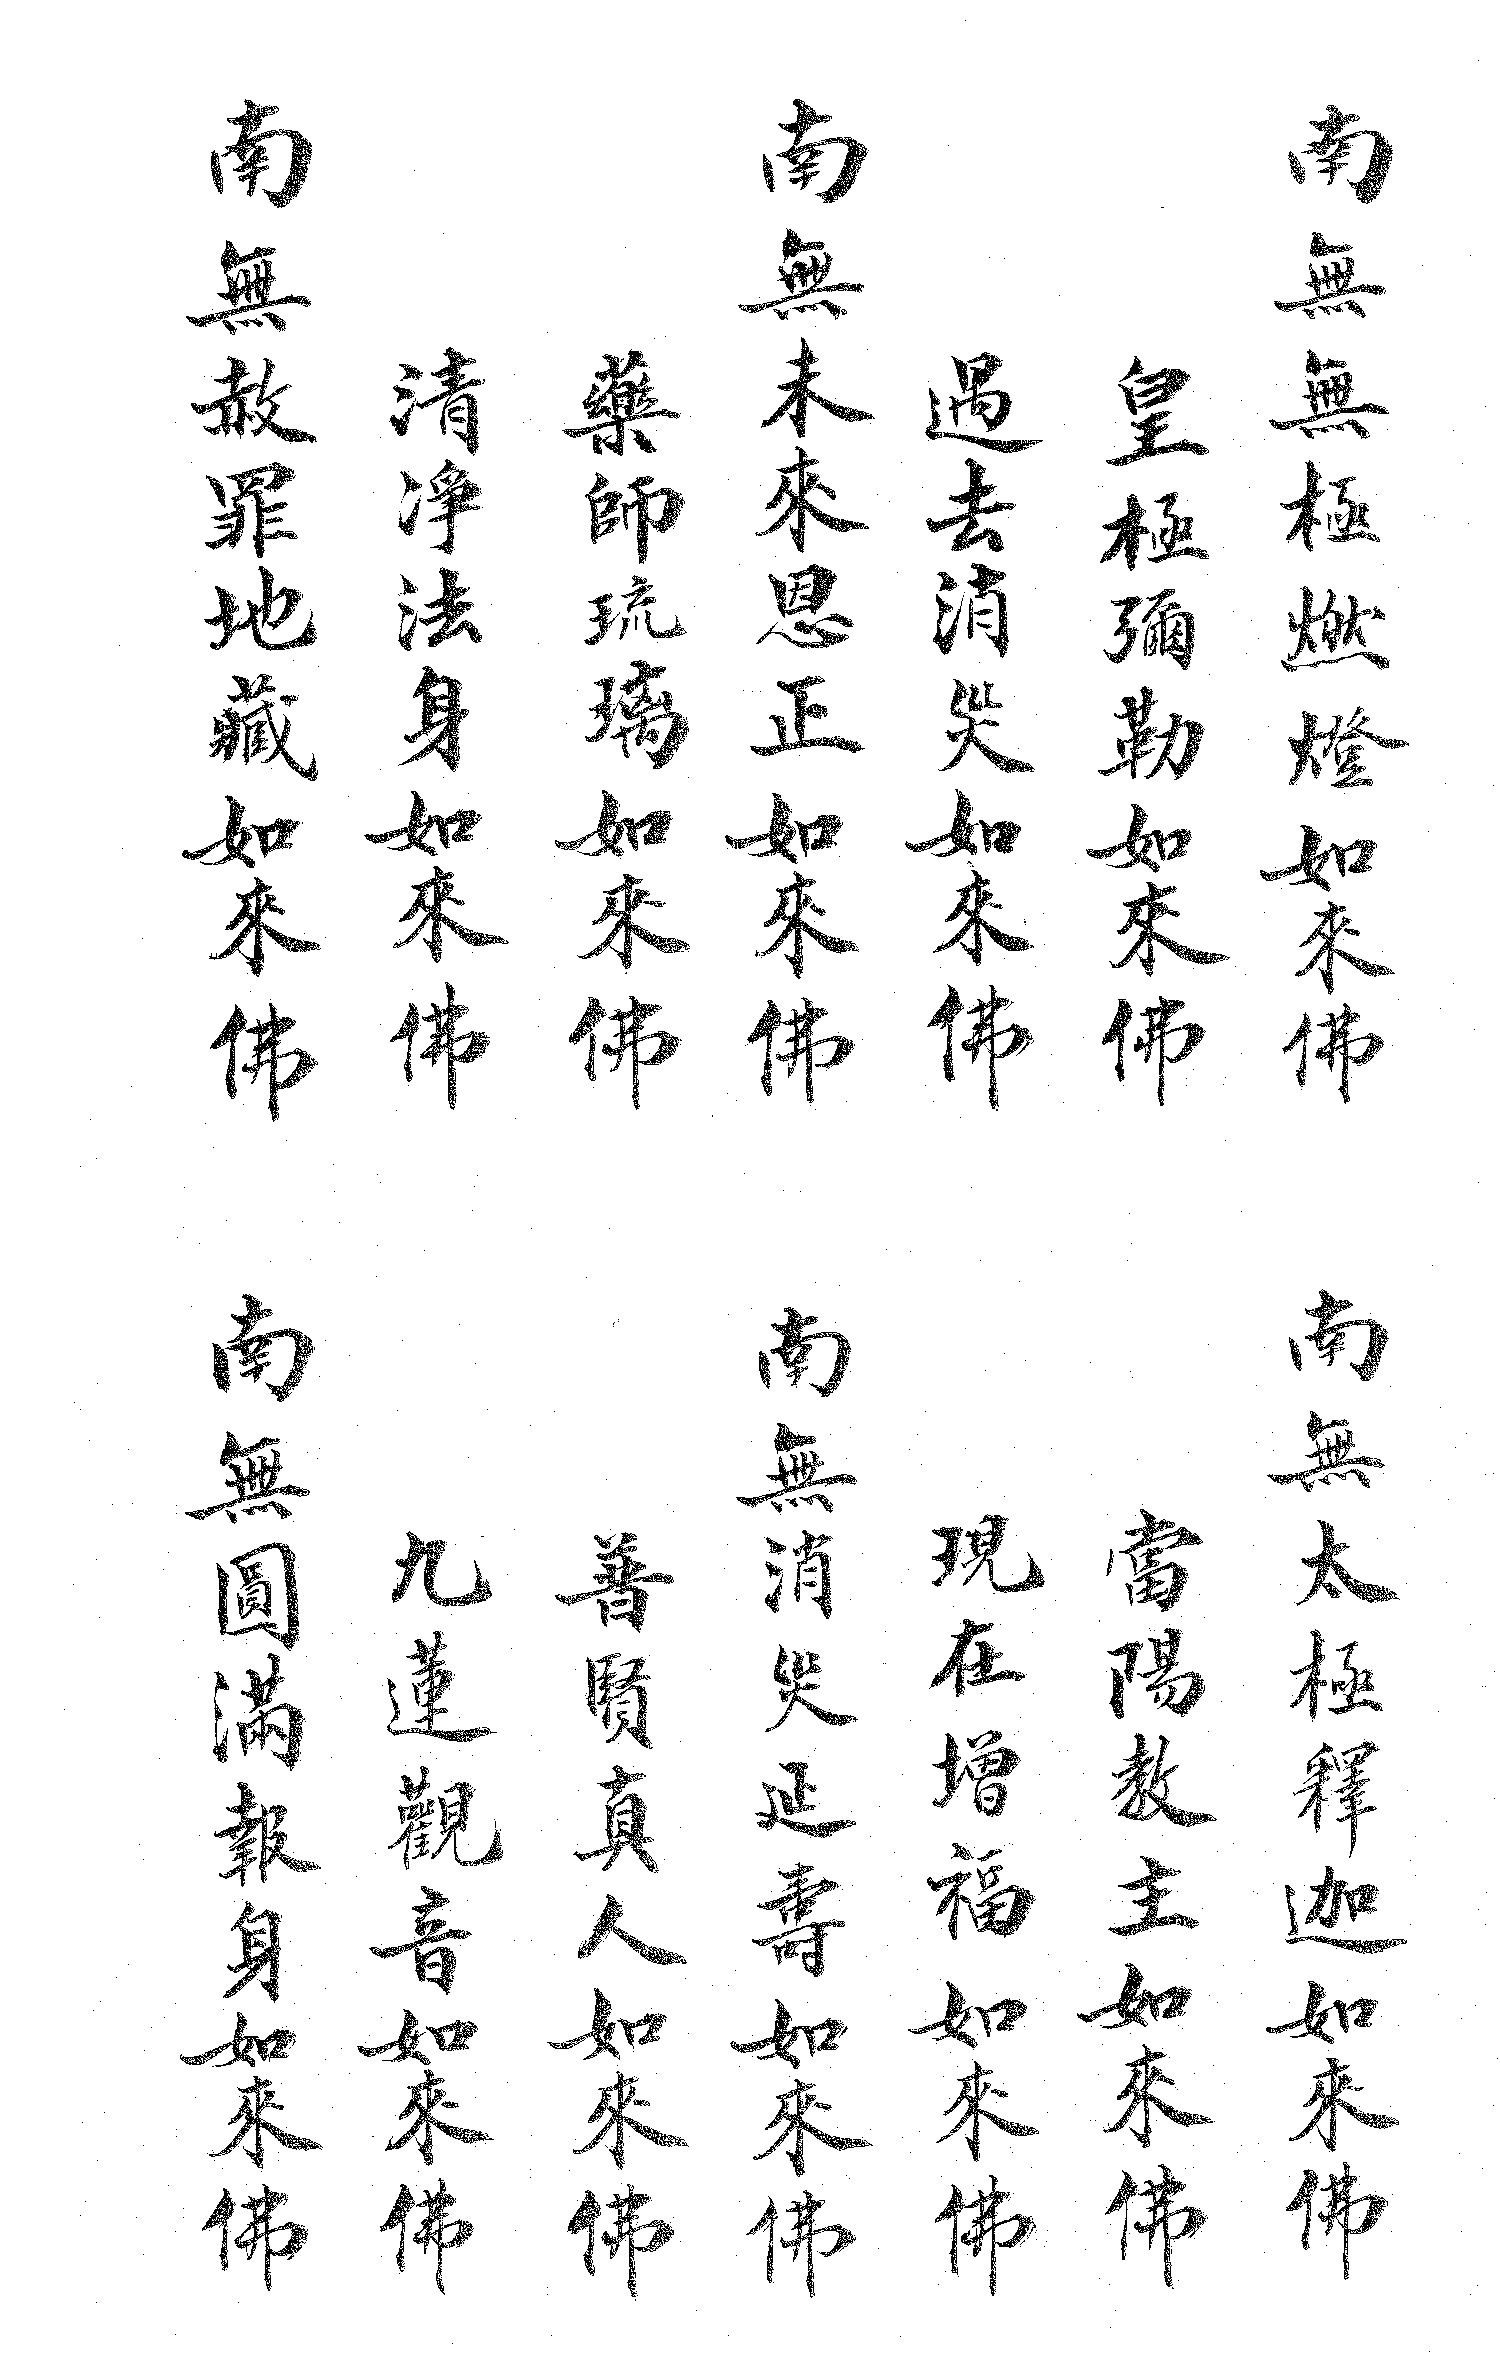 南無無極燃燈如來佛
南無太極釋迦如來佛
皇極彌勒如來佛
當陽教主如來佛
過去消災如來佛
現在增福如來佛
南無未來恩正如來佛
南無消災延壽如來佛
藥師琉璃如來佛
普賢真人如來佛
清凈法身如來佛
九蓮觀音如來佛
南無赦罪地藏如來佛
南無圓滿報身如來佛